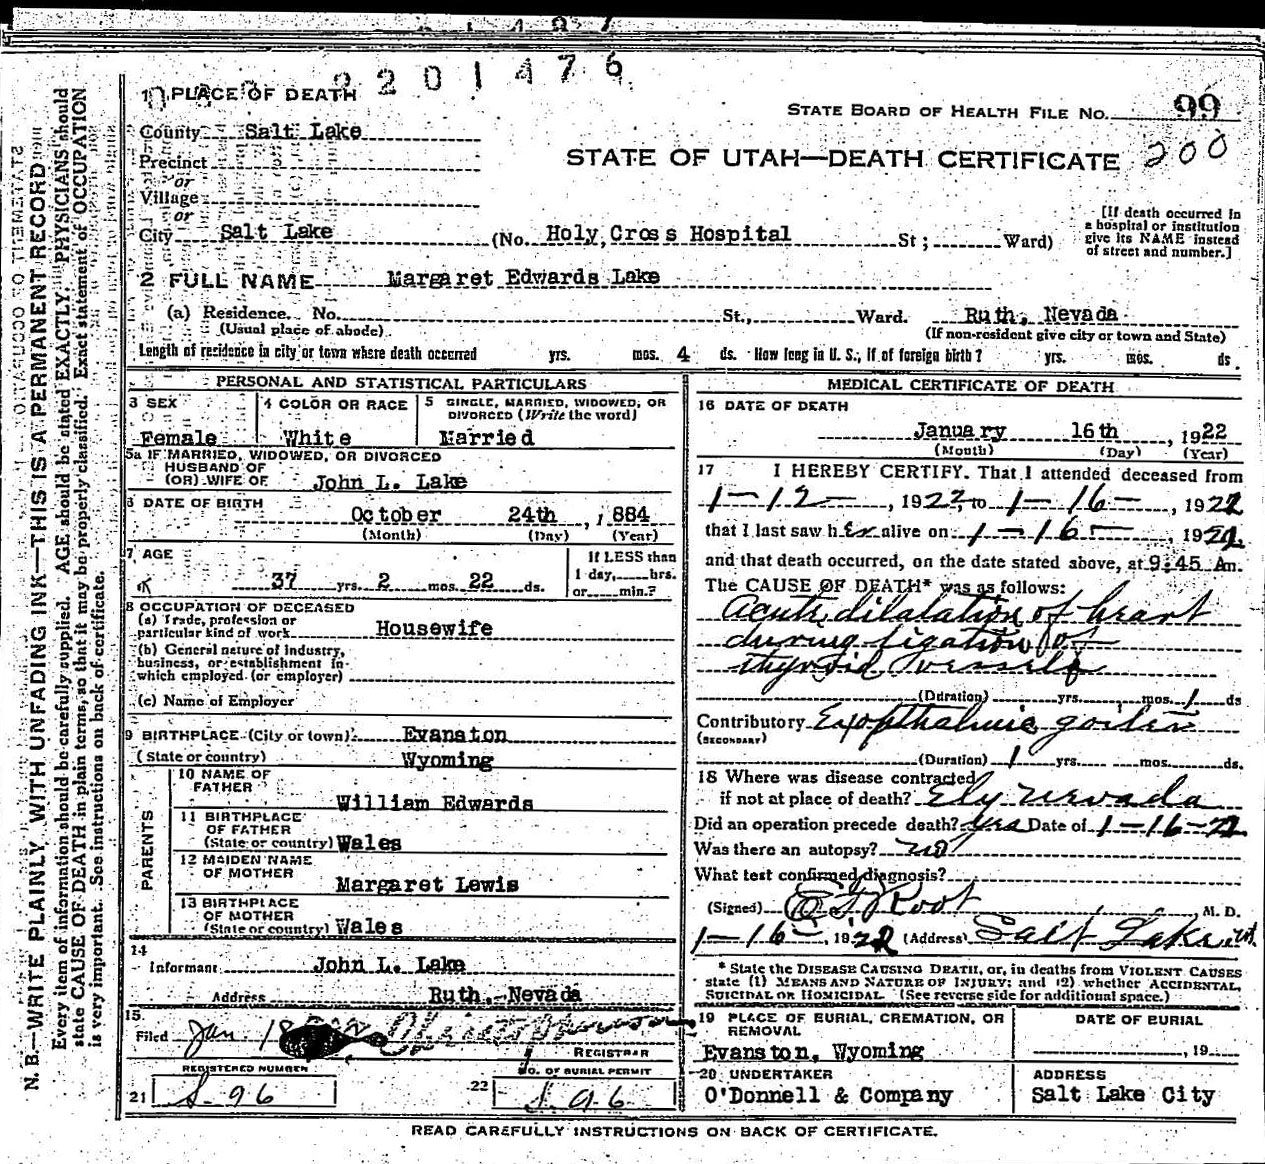 2201476
1 PLACE OF DEATH
STATE BOARD OF HEALTH FILE NO. 99
County Salt Lake
STATE OF UTAH—DEATH CERTIFICATE 200
Precinct
or
Village
or
City Salt Lake (No. Holy Cross Hospital St; Ward)
[If death occurred in
a hospital or institution
give its NAME instead
of street and number.]
2 FULL NAME Margaret Edwards Lake
(a) Residence. No. St., Ward. Ruth, Nevada
(Usual place of abode) (If non-resident give city or town and State)
Length of residence in city or town where death occurred yrs. mos. 4 ds. How long in U. S., if of foreign birth? yrs. mos. ds
PERSONAL AND STATISTICAL PARTICULARS
3 SEX
Female
4 COLOR OR RACE
White
5 SINGLE, MARRIED, WIDOWED, OR
DIVORCED (Write the word)
Married
5a IF MARRIED, WIDOWED, OR DIVORCED
HUSBAND OF
(OR) WIFE OF John L. Lake
6 DATE OF BIRTH
October 24th, 1884
(Month) (Day) (Year)
7 AGE
37 yrs. 2 mos. 22 ds.
If LESS than
1 day, hrs.
or min.?
8 OCCUPATION OF DECEASED
(a) Trade, profession or
particular kind of work Housewife
(b) General nature of industry,
business, or establishment in
which employed (or employer)
(c) Name of Employer
9 BIRTHPLACE (City or town) Evanston
(State or country) Wyoming
PARENTS
10 NAME OF
FATHER
William Edwards
11 BIRTHPLACE
OF FATHER
(State or country) Wales
12 MAIDEN NAME
OF MOTHER
Margaret Lewis
13 BIRTHPLACE
OF MOTHER
(State or country) Wales
14
Informant John L. Lake
Address Ruth, Nevada
15.
Filed Jan. 18
REGISTRAR
REGISTERED NUMBER
21 S-96
NO. OF BURIAL PERMIT
22 S-96
MEDICAL CERTIFICATE OF DEATH
16 DATE OF DEATH
January 16th, 1922
(Month) (Day) (Year)
17 I HEREBY CERTIFY. That I attended deceased from
1-12-, 1922, to 1-16-, 1922
that I last saw her alive on 1-16-1922
and that death occurred, on the date stated above, at 9:45 Am.
The CAUSE OF DEATH* was as follows:
Acute dilalation of heart
during ligation of
thyroid vessels
(Duration) yrs. mos. 1 ds
Contributory Exopthalmic goiter
(SECONDARY)
(Duration) 1 yrs. mos. ds.
18 Where was disease contracted
if not at place of death? Ely Nevada
Did an operation precede death? yes Date of 1-16-22
Was there an autopsy? no
What test confirmed diagnosis?
(Signed) Root M. D.
1-16-, 1922 (Address) Salt Lake ut.
* State the DISEASE CAUSING DEATH, or, in deaths from VIOLENT CAUSES
state (1) MEANS AND NATURE OF INJURY; and (2) whether ACCIDENTAL,
SUICIDAL OR HOMICIDAL. (See reverse side for additional space.)
19 PLACE OF BURIAL, CREMATION, OR
REMOVAL
Evanston, Wyoming
DATE OF BURIAL
, 19
20 UNDERTAKER
O'Donnell & Company
ADDRESS
Salt Lake City
READ CAREFULLY INSTRUCTIONS ON BACK OF CERTIFICATE.
N. B.—WRITE PLAINLY WITH UNFADING INK—THIS IS A PERMANENT RECORD
Every item of information should be carefully supplied. AGE should be stated EXACTLY. PHYSICIANS should
state CAUSE OF DEATH in plain terms, so that it may be properly classified. Exact statement of OCCUPATION
is very important. See instructions on back of certificate.